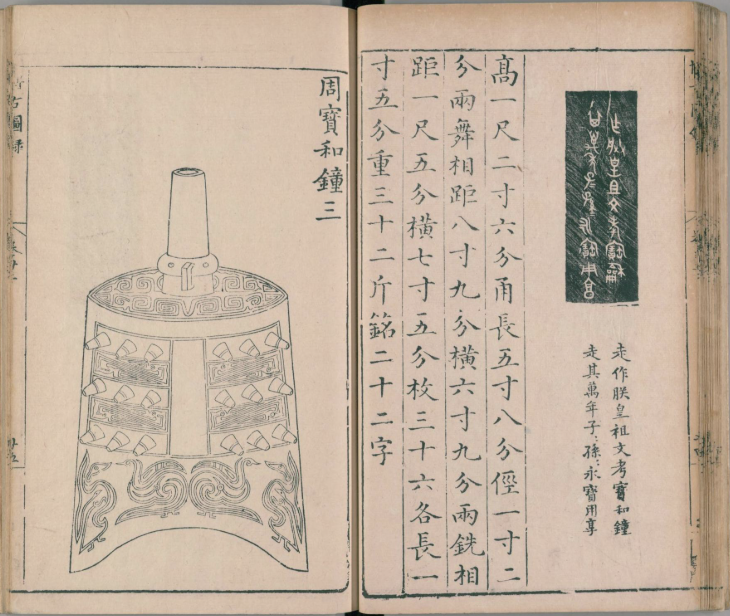 走作朕皇祖文考寶和鐘
走其萬年子〻孫〻永寶用享
高一尺二寸六分甬長五寸八分俓一寸二
分兩舞相距八寸九分橫六寸九分兩銑相
距一尺五分橫七寸五分枚三十六各長一
寸五分重三十二斤銘二十二字
周寶和鐘三
古圖錄